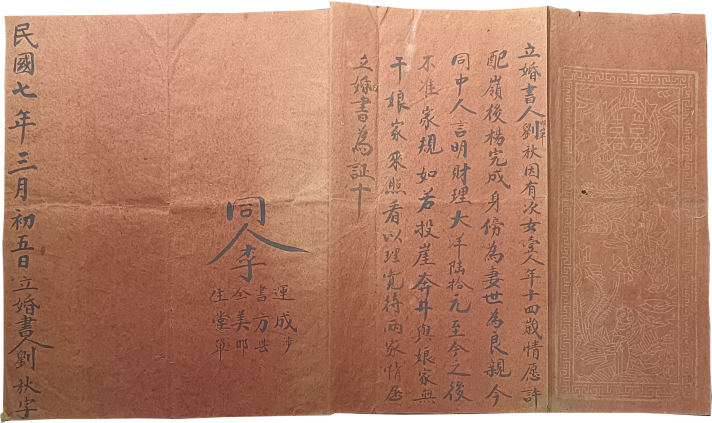 立婚書人劉秋因有次女壹人年十四歲情應許
配嶺後楊完成身傍為妻世為良親今
同中人言明財理大洋陸拾元至今之後
不准家規如若投崖奔井與娘家無
干娘家來照看以理寬待兩家情愿
立婚書為証十
同人李
運成
書方
全美
生堂
民國七年三月初五日立婚書人劉秋字